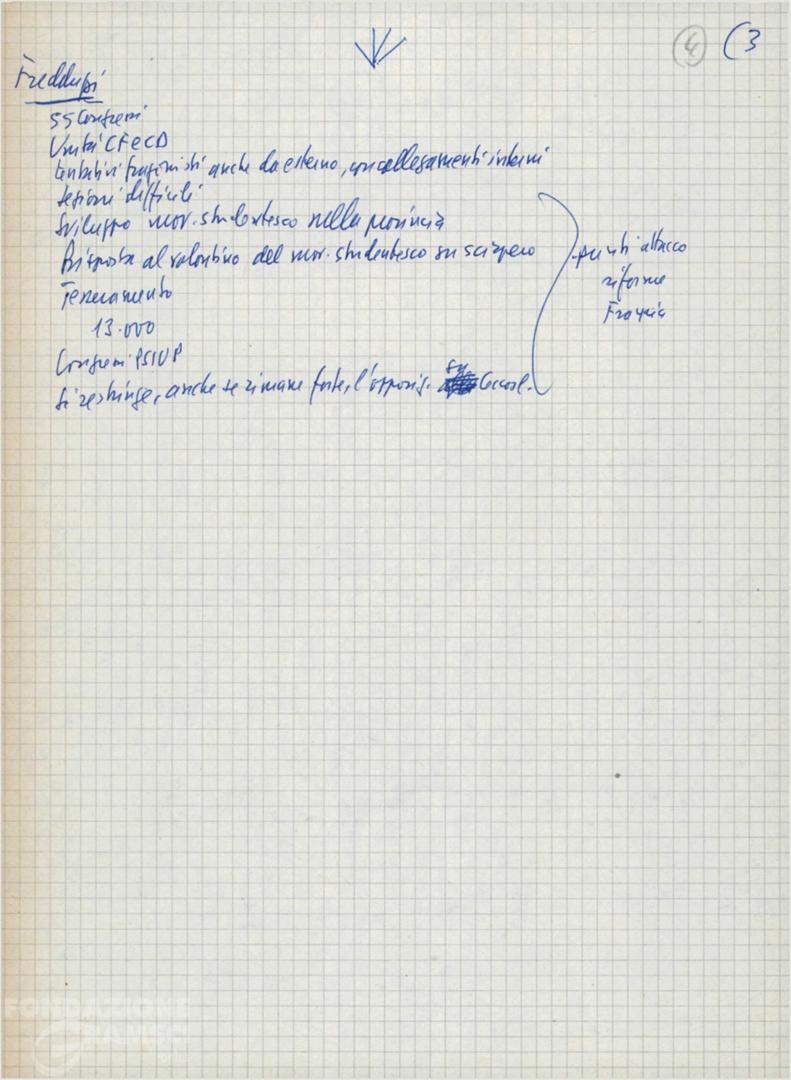 4 (3
Freddupi
55 Congressi
Unità CF e CD
tentativi frazionisti anche da esterno, con collegamenti interni
sezioni difficili
Sviluppo mov. studentesco nella provincia
Risposta al volantino del mov. studentesco su sciopero
Tesseramento
13.000
Congressi PSIUP
Si restringe, anche se rimane forte, l'opposiz. su
punti attacco
riforme
Francia
FONDAZIONE
GRAMSCI